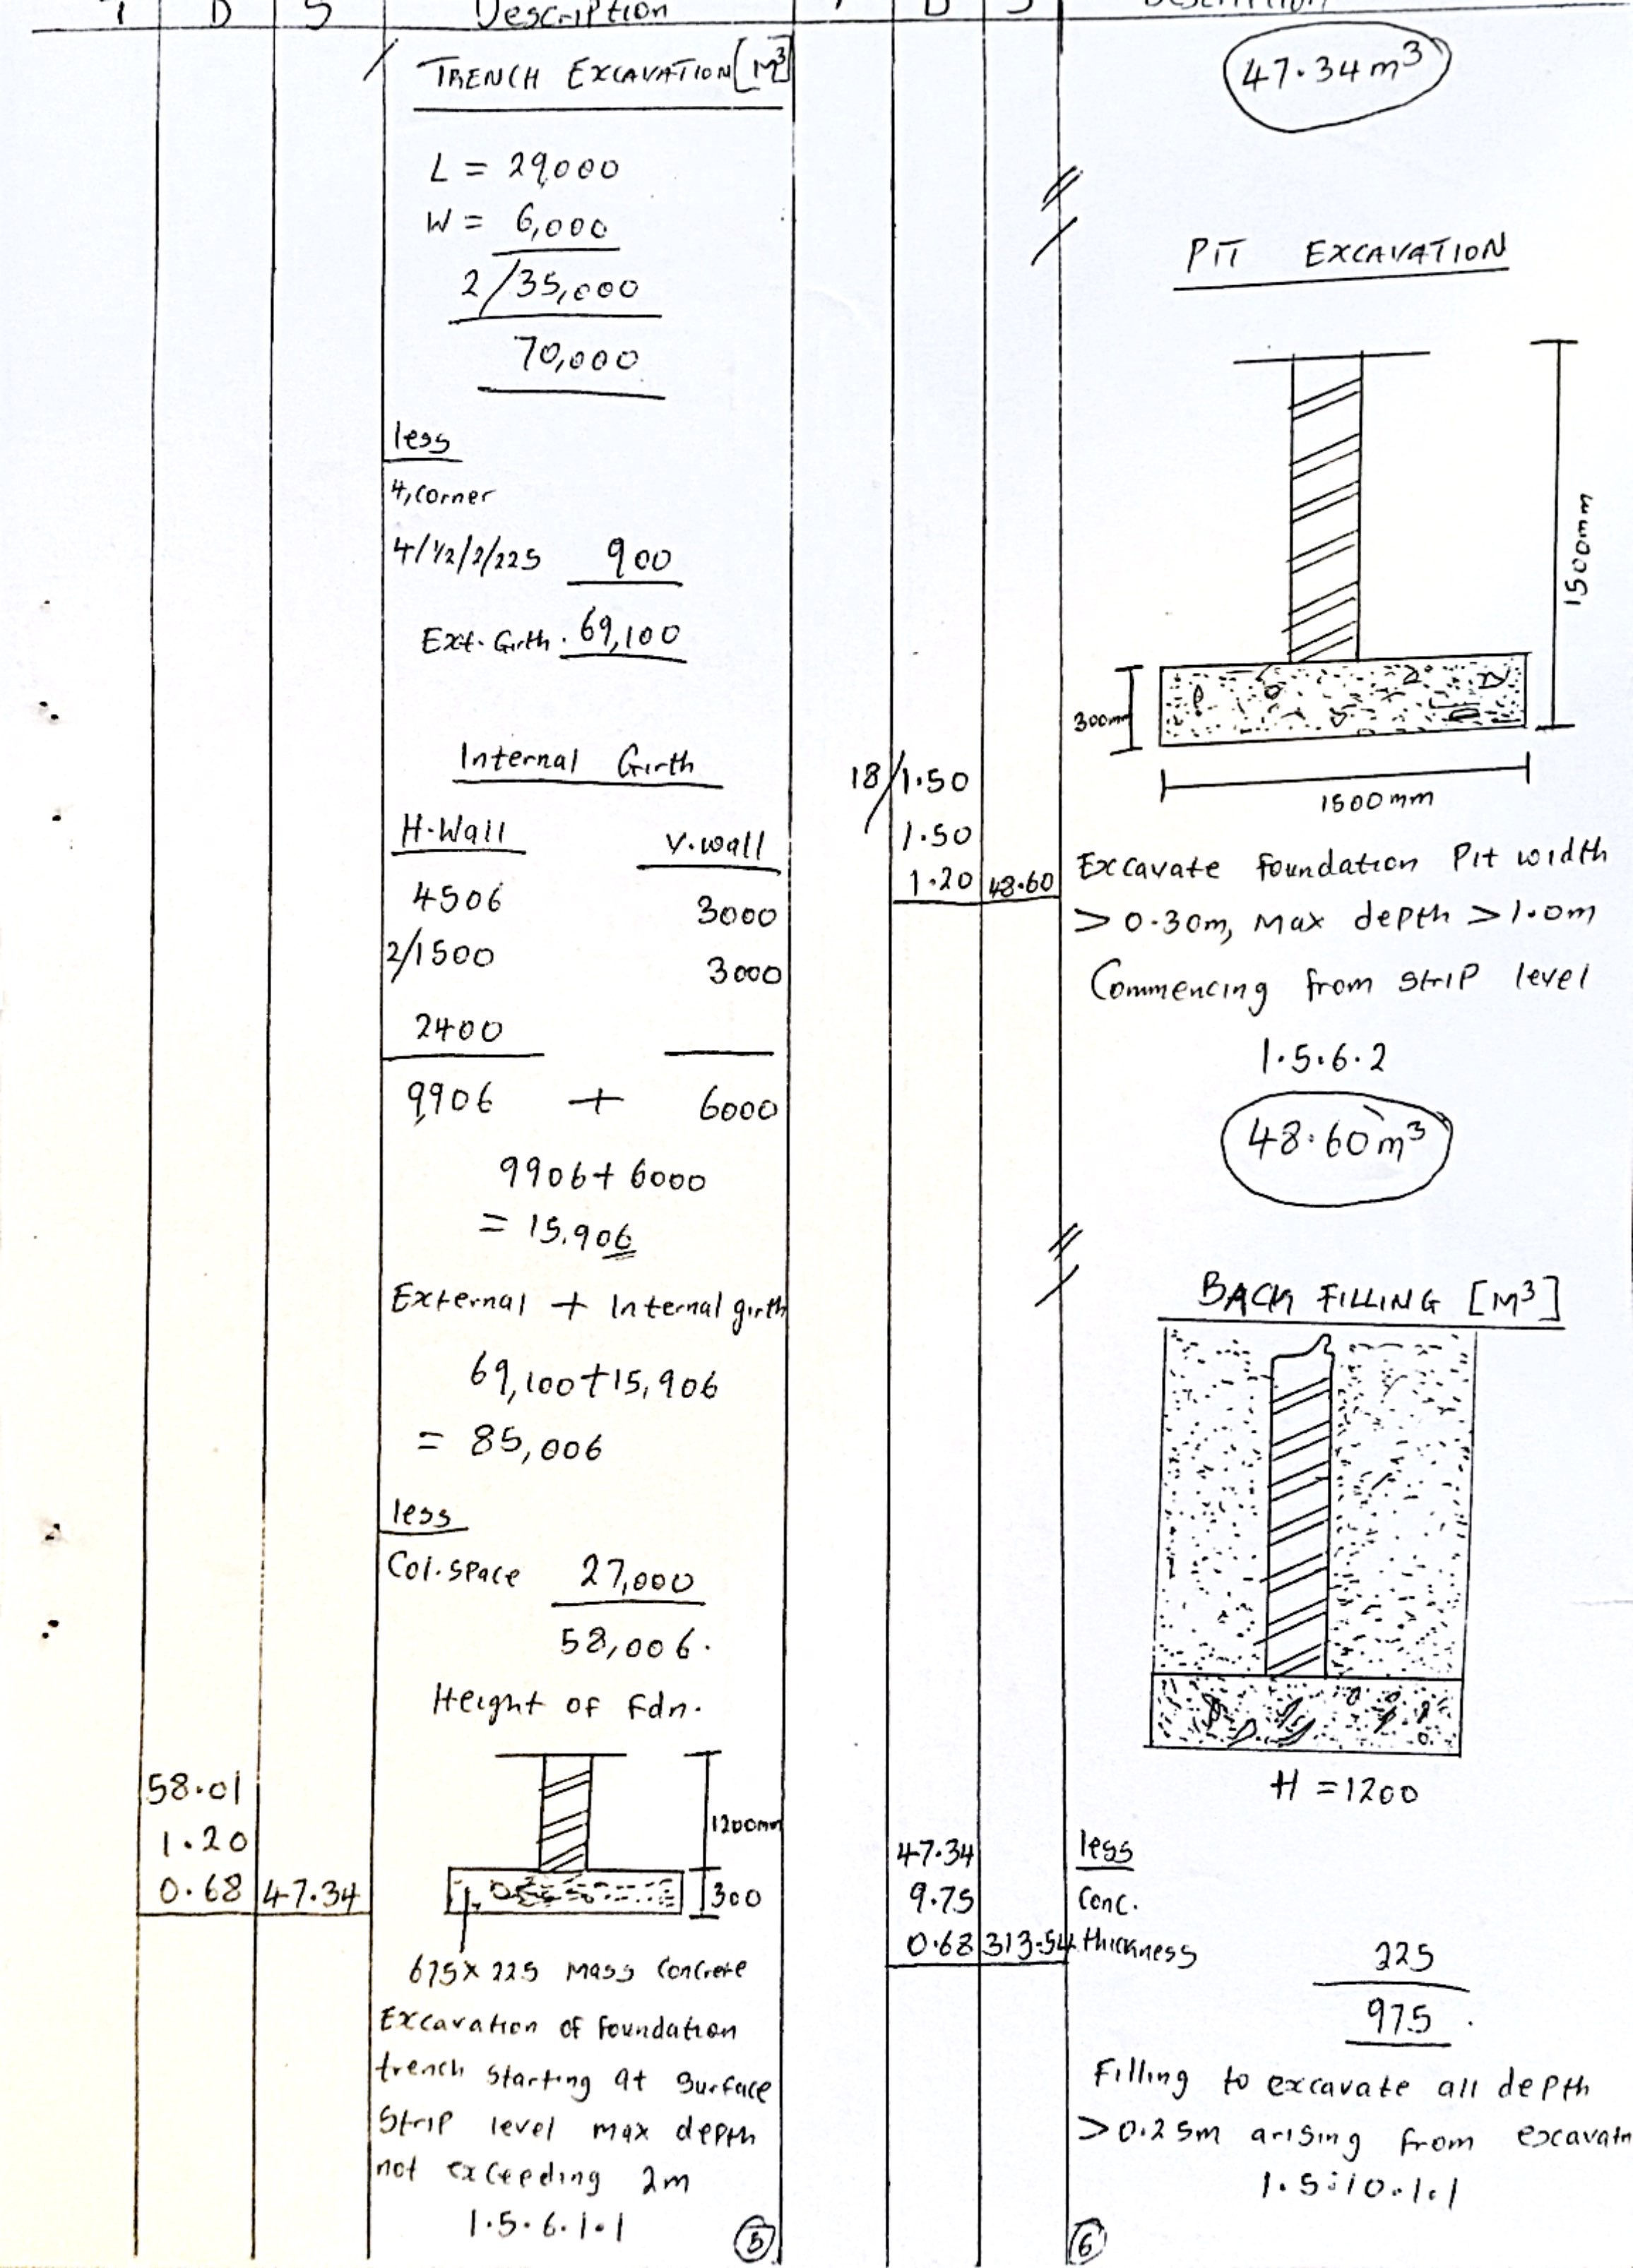 T D S Description
TRENCH EXCAVATION [M³]
L = 29,000
W = 6,000
2/35,000
70,000
less
4, corner
4/1/2/2/225 900
Ext. Girth. 69,100
Internal Girth
H.Wall V.wall
4506 3000
2/1500 3000
2400
9,906 + 6000
9906 + 6000
= 15,906
External + Internal girth
69,100+15,906
= 85,006
less
Col. space 27,000
58,006.
Height of Fdn.
58.01
1.20
0.68 47.34
1200mm
300
675 x 225 Mass Concrete
Excavation of foundation
trench starting at surface
Strip level max depth
not exceeding 2m
1.5.6.1.1
5
D S Description
47.34m³
PIT EXCAVATION
1500mm
300mm
1500mm
18/1.50
1.50
1.20 48.60
Excavate foundation Pit width
> 0.30m, Max depth > 1.0m
Commencing from strip level
1.5.6.2
48.60m³
BACK FILLING [M³]
H = 1200
47.34
9.75
0.68 313.54
less
Conc.
thickness 225
975.
Filling to excavate all depth
>0.25m arising from excavatn
1.5:10.1.1
6